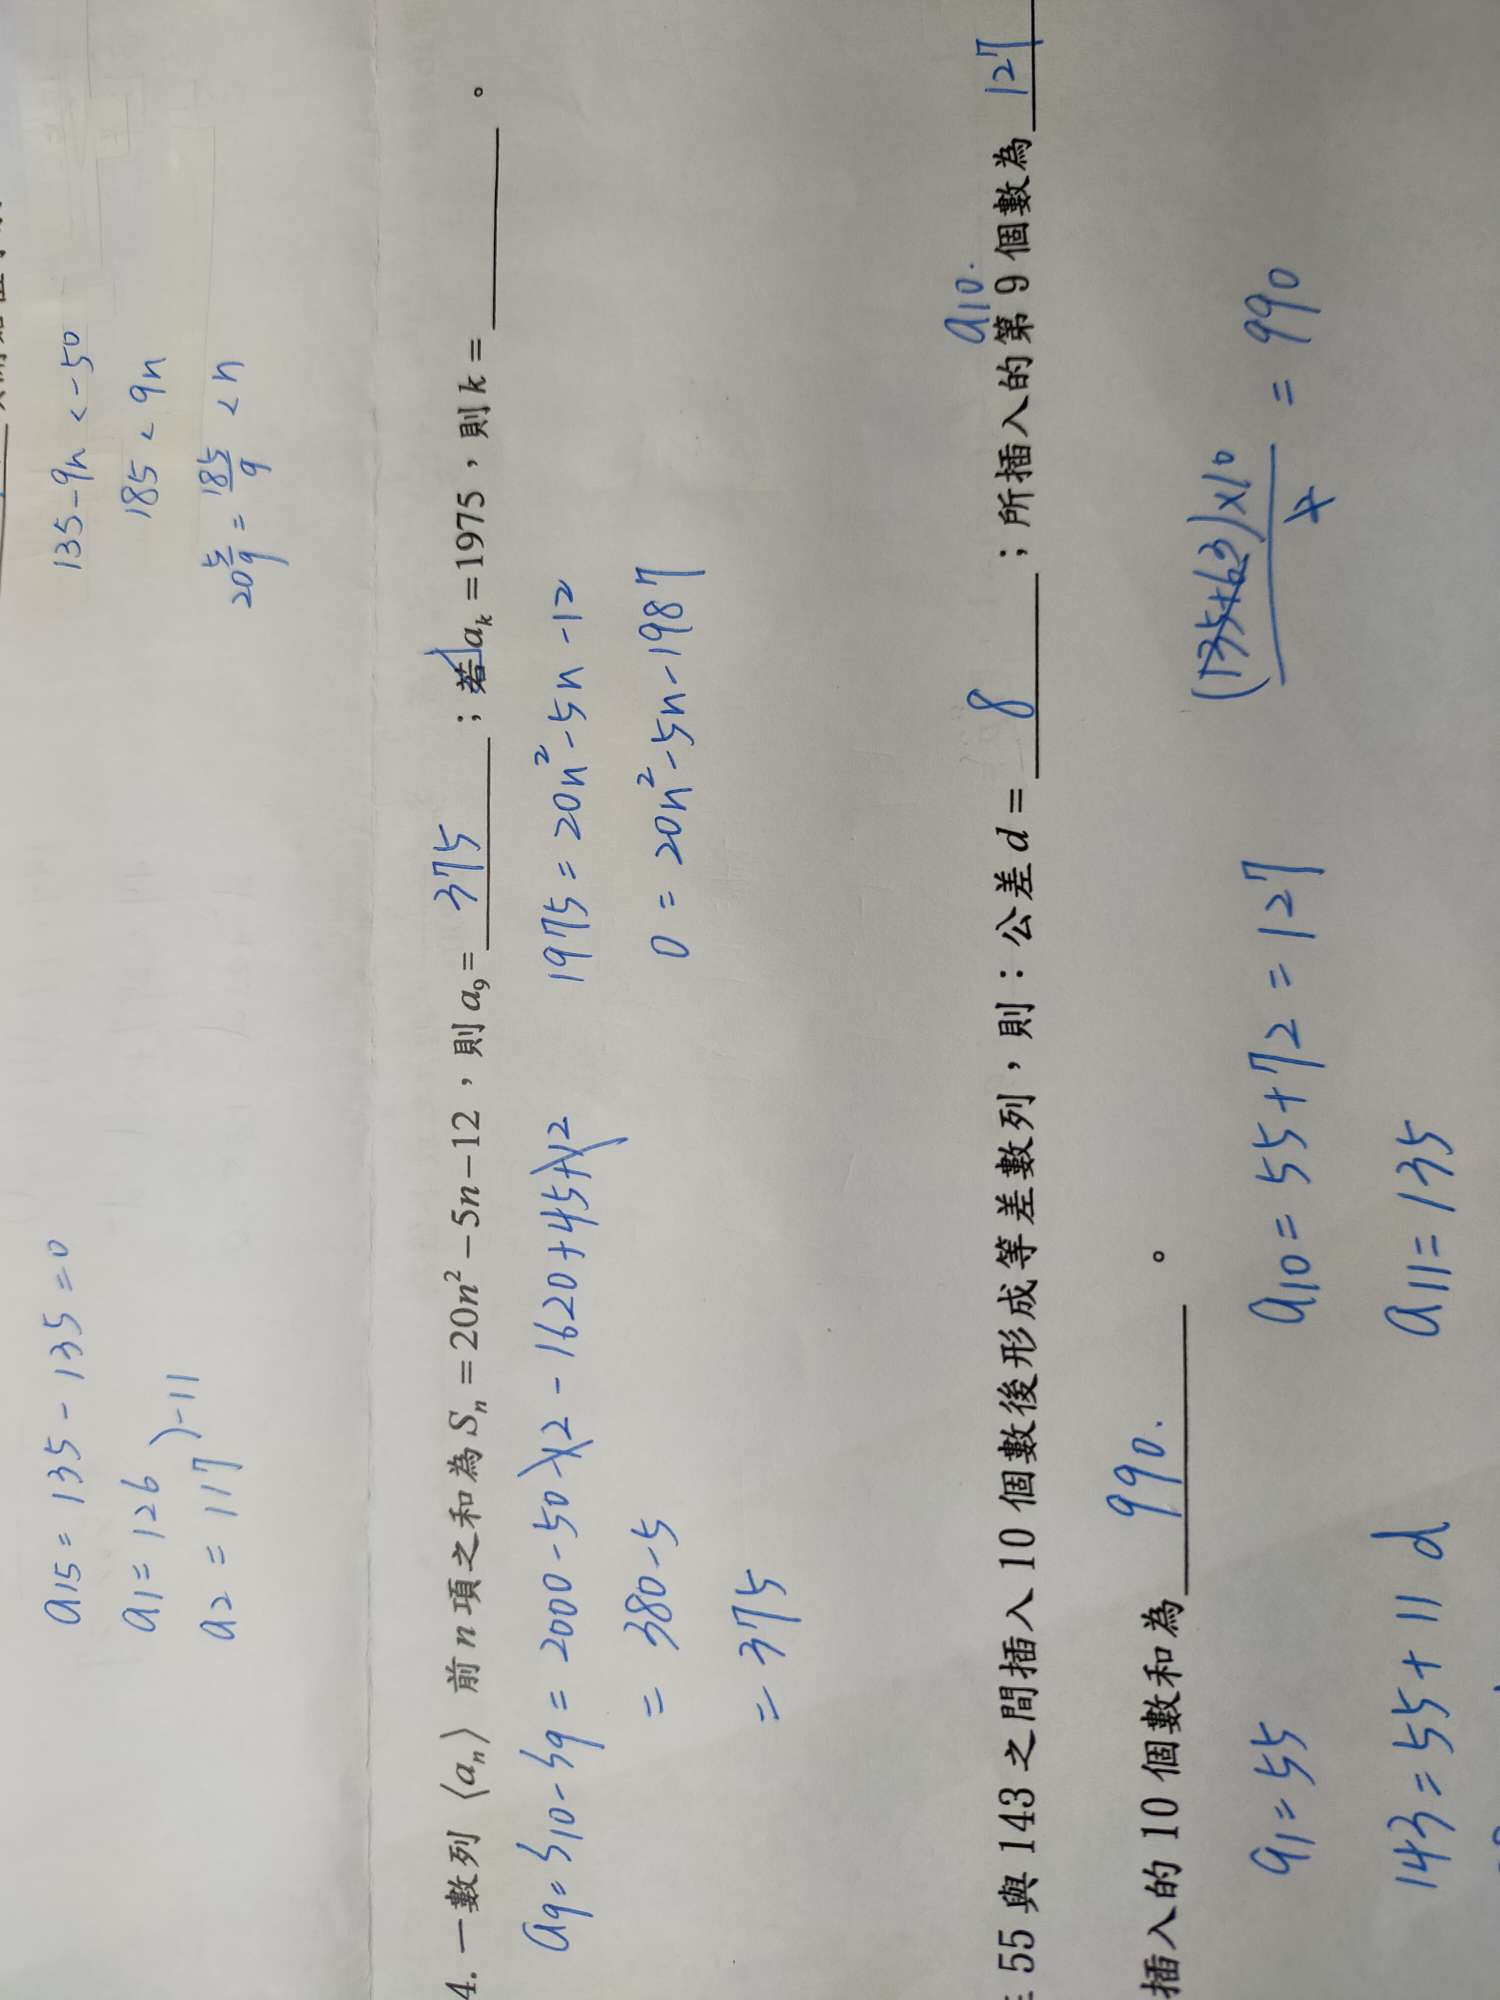 a15 = 135 - 135 = 0
a1 = 126
a2 = 117 ) -11
135 - 9n < -50
185 < 9n
20 5/9 = 185/9 < n
4. 一數列〈aₙ〉前 n 項之和為 Sₙ = 20n² − 5n − 12，則 a₉ = 375 ；若 aₖ = 1975，則 k = ＿＿＿。
a9 = S10 - S9 = 2000 - 50 - 12 - 1620 + 45 + 12
= 380 - 5
= 375
1975 = 20n² - 5n - 12
0 = 20n² - 5n - 1987
a10.
55 與 143 之間插入 10 個數後形成等差數列，則：公差 d = 8 ；所插入的第 9 個數為 127
插入的 10 個數和為 990. 。
a1 = 55
143 = 55 + 11 d
a10 = 55 + 72 = 127
a11 = 135
(135+63)×10/2 = 990